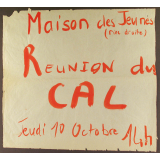 Maison des Jeunes
(rive droite)
REUNION du
CAL
Jeudi 10 Octobre 14h